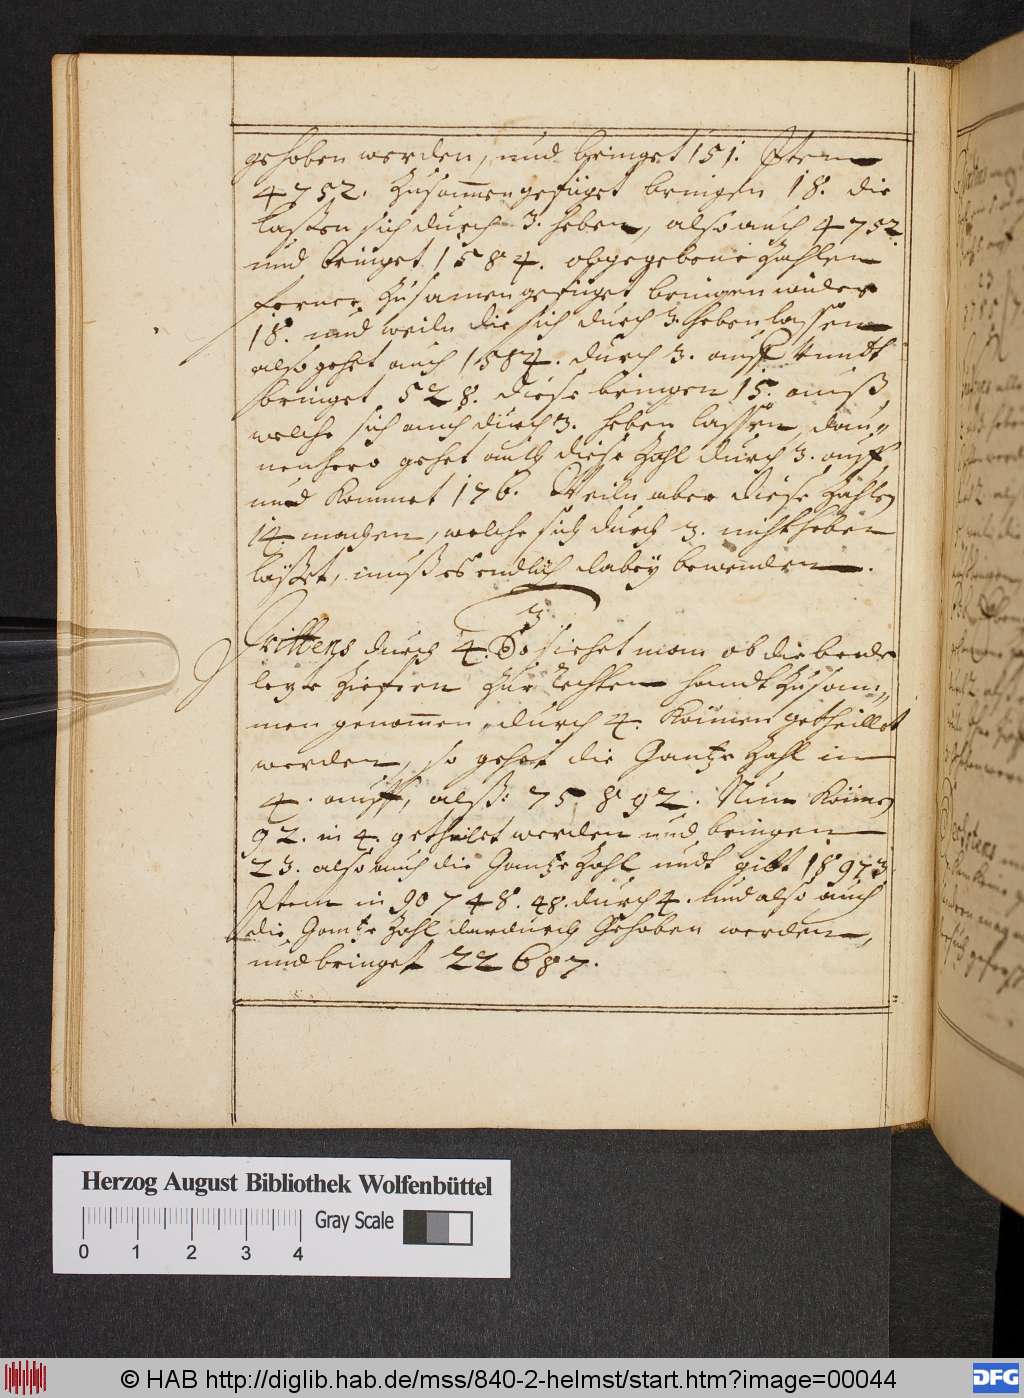 gehoben werden, und bringet 151. Item
4752. Zusammen gefüget bringen 18. die
laßen sich durch 3. heben, also auch 4752
und bringet 1584. obgegebene Zahlen
ferner Zusamen gefüget bringen wieder
18. und weiln die sich durch 3. heben lassen
also gehet auch 1584. durch 3. auff undt
bringet 528. diese bringen 15. auß
welche sich auch durch 3. heben lassen, dan,,
nenhero gehet auch diese Zahl durch 3. auff
und kommet 176. Weiln aber diese Zahlen
14. machen, welche sich durch 3. nicht heben
läßet, muß es endlich dabey bewenden.
3
Drittens durch 4. So siehet man ob die beyde
letzte Ziefern Zur rechten handt Zusam,,
men genommen durch 4. können getheillet
werden, so gehet die Gantze Zahl in
4. auff, alß: 75892. Nun können
92. in 4. getheilet werden und bringen
23. also auch die Gantze Zahl undt gibt 18973
Item in 90748. 48. durch 4. und also auch
die Gantze Zahl dardurch Gehoben werden,
und bringet 22687.
Herzog August Bibliothek Wolfenbüttel
Gray Scale
0 1 2 3 4
© HAB http://diglib.hab.de/mss/840-2-helmst/start.htm?image=00044
DFG